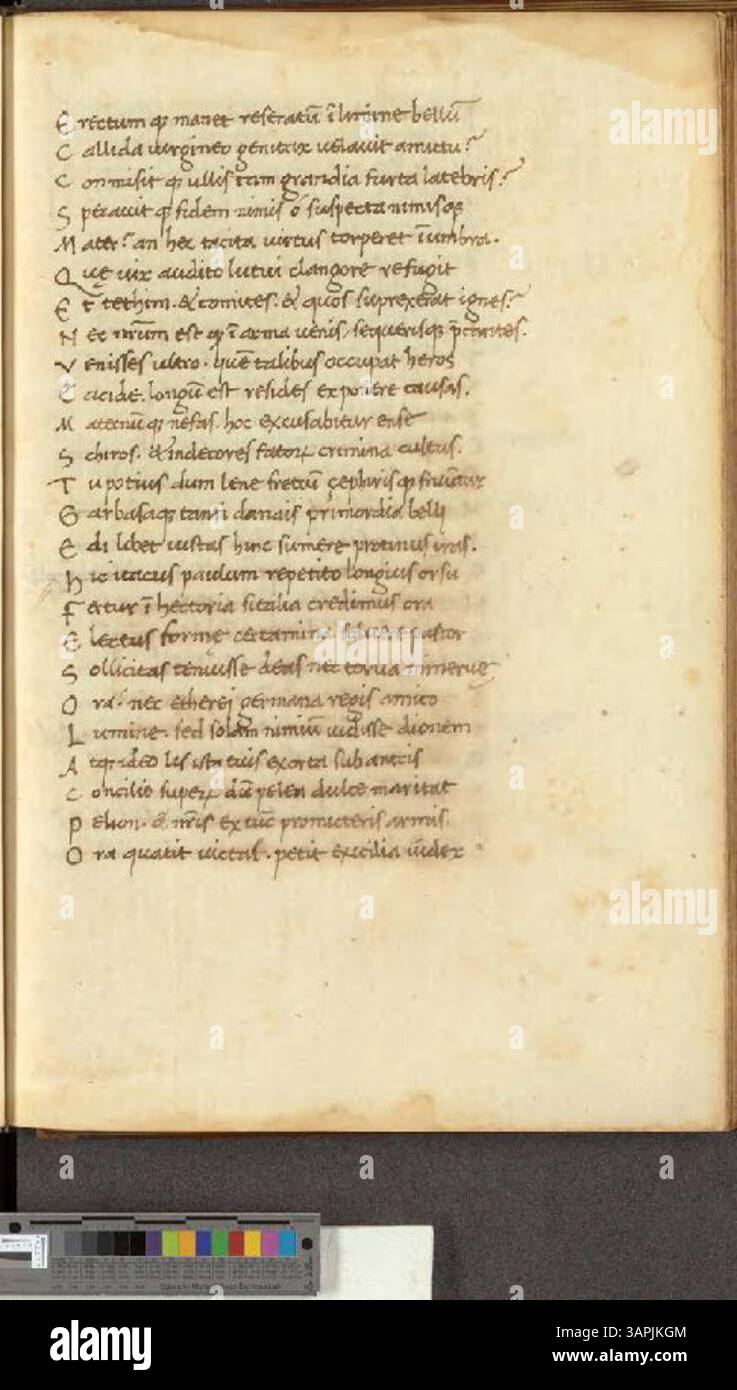 E rectum qȝ manet reseratū ī limine bellū
C allida uirgineo genitrix uelauit amictu?
C ommisit qȝ ullis tam grandia furta latebris?
S perauit qȝ fidem nimis ó suspecta nimisqȝ
M ater? an hec tacita uirtus torperet ī umbra.
Q uę uix audito litui clangore refugit
E t tethim. & comites. & quos suprexerat ignes?
N ec nr̄um est qȝ ī arma uenis, sequerisqȝ p̄cantes.
V enisses ultro. quē talibus occupat heros
E acides. longū est resides exponere causas.
M aternūqȝ nefas. hoc excusabitur ense
S chiros. & indecores fatorꝝ crimina cultus.
T u potius dum lene fretum zephirisqȝ fruūtur
G arbasaqȝ tanti danais primordia belli
E di libet iustas hinc sumere protinus iras.
h ic itacus paulum repetito longius orsu
F ertur ī hectoria si talia credimus ora
E lectus formę certamina pastor
S ollicitas tenuisse deas nec torua minerue
O ra. nec etherei germana regis amico
L umine. sed solam nimiū uidisse dionem
A tqȝ adeo lis ista tuis exorta sub antris
C oncilio superꝝ dū pelea dulce maritat
P elion. & nr̄is ex tūc promicteris armis.
O ra quatit uictas. petit exicilia iudex
alamy
a
Image ID: 3APJKGM
www.alamy.com